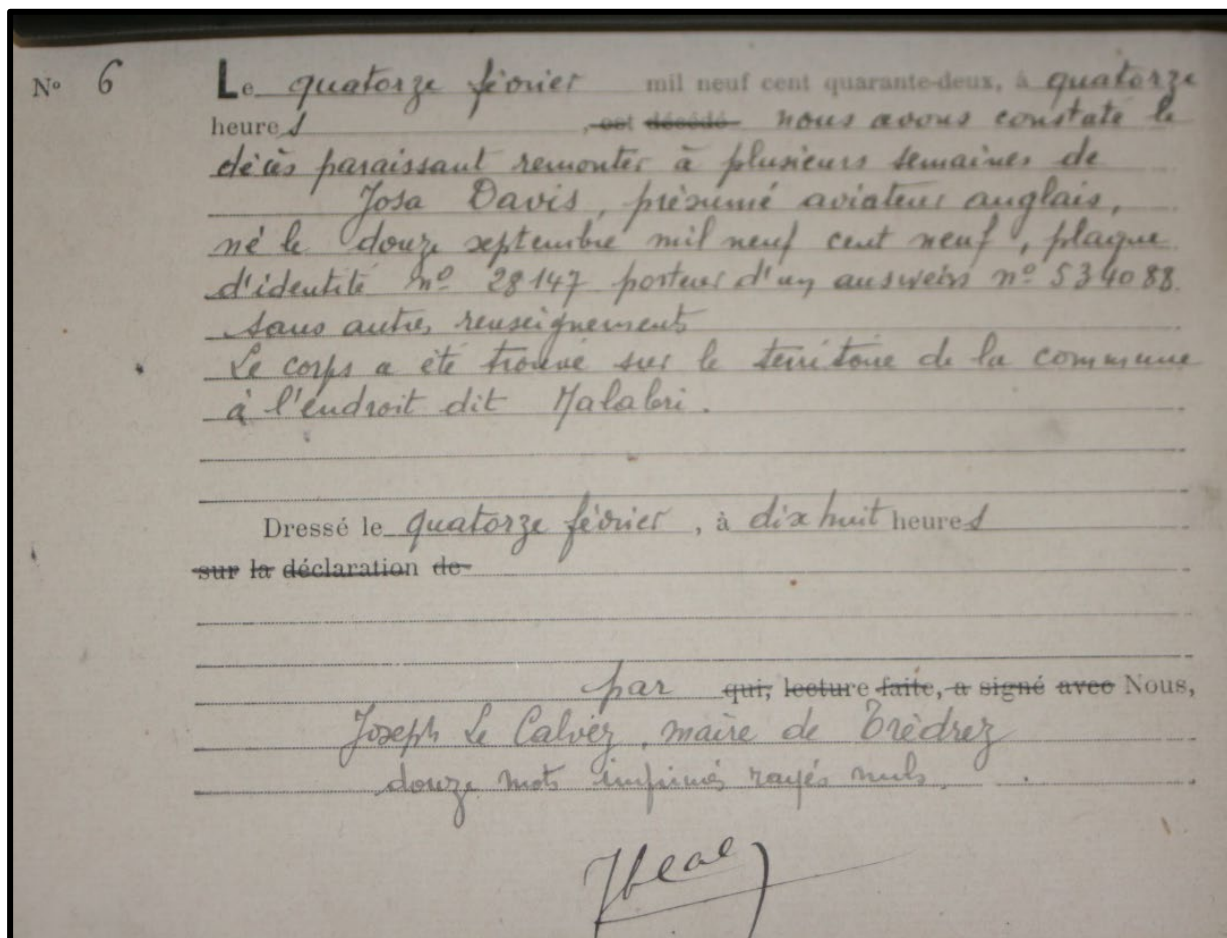 N° 6 Le quatorze février mil neuf cent quarante-deux, à quatorze
heures, est décédé nous avons constaté le
décès paraissant remonter à plusieurs semaines de
Josa Davis, présumé aviateur anglais,
né le douze septembre mil neuf cent neuf, plaque
d'identité n° 28147 porteur d'un ausweirs n° 534088.
sans autres renseignements
Le corps a été trouvé sur le territoire de la commune
à l'endroit dit
Dressé le quatorze février, à dix huit heures
sur la déclaration de
par qui, lecture faite, a signé avec Nous,
Joseph Le Calvez, maire de Trédrez
douze mots imprimés rayés nuls.